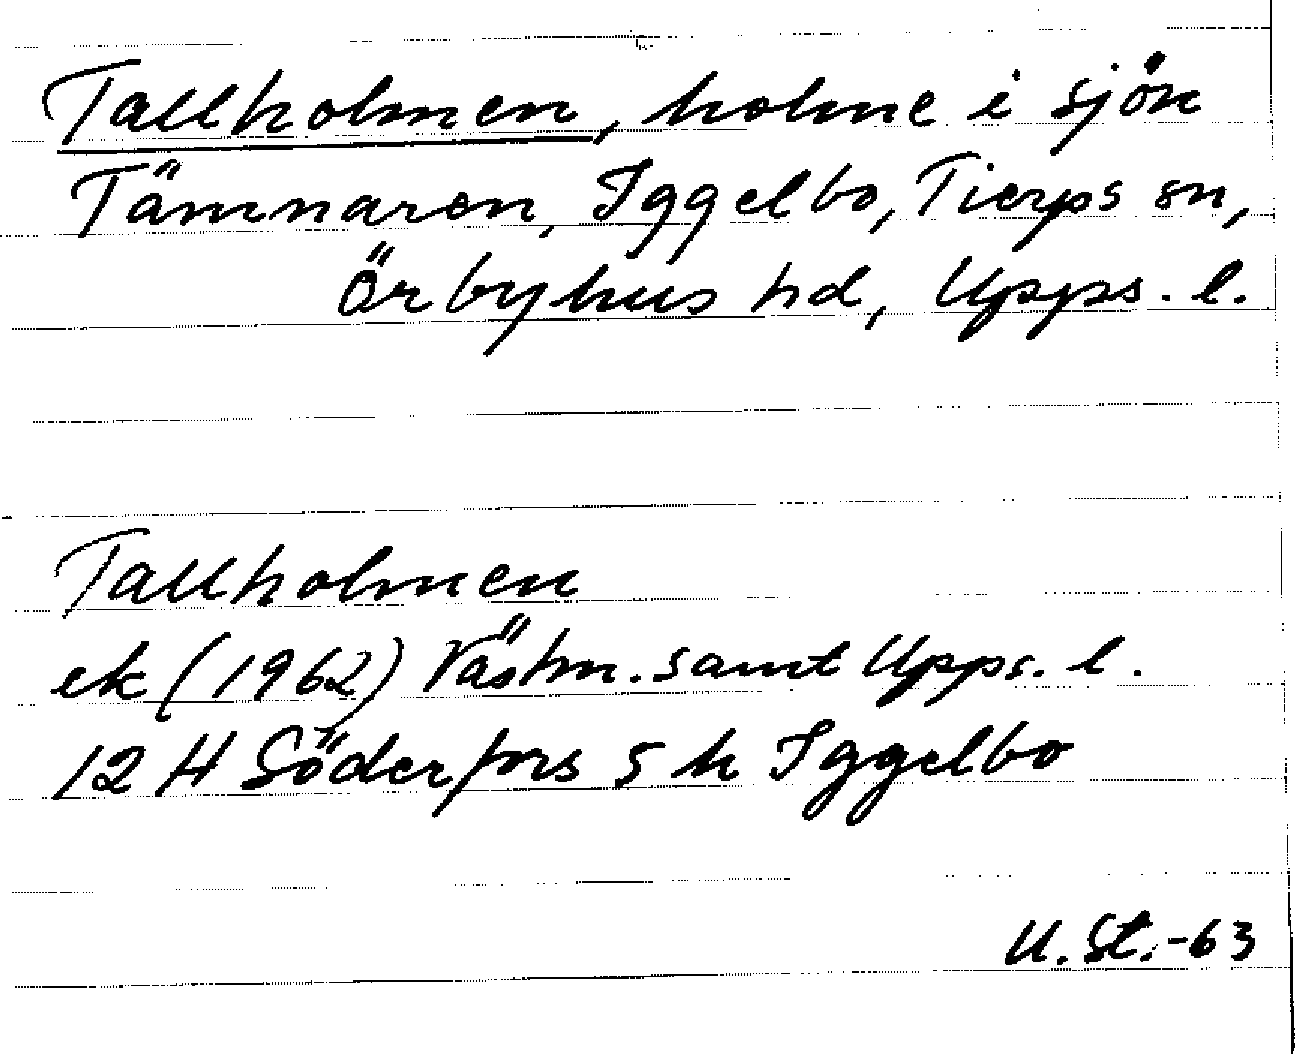 Tallholmen, holme i sjön
Tämnaren, Iggelbo, Tierps sn,
Örbyhus hd, Upps. l.
Tallholmen
ek (1962) Västm. samt Upps. l.
12 H Söderfors 5 h Iggelbo
U. St. -63